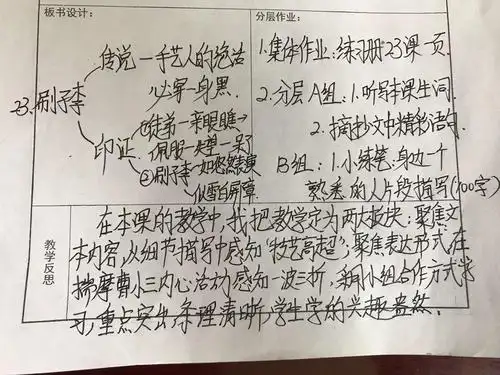 板书设计:
23.刷子李
传说—手艺人的绝活
必穿一身黑
印证
①徒弟—亲眼瞧→
佩服—失望—
②刷子李—如悠然
似雪白屏障
分层作业:
1.集体作业:练习册23课一页.
2.分层A组:1.听写本课生词
2.摘抄文中精彩语句
B组:1.小练笔:身边一个
熟悉的人片段描写(100字)
教学反思
在本课的教学中,我把教学定为两大板块:聚焦文
本内容,以细节描写中感知"技艺高超";聚焦表达形式,在
揣摩曹小三内心活动感知一波三折,采用小组合作方式学
习,重点突出,条理清晰,学生学的兴趣盎然.